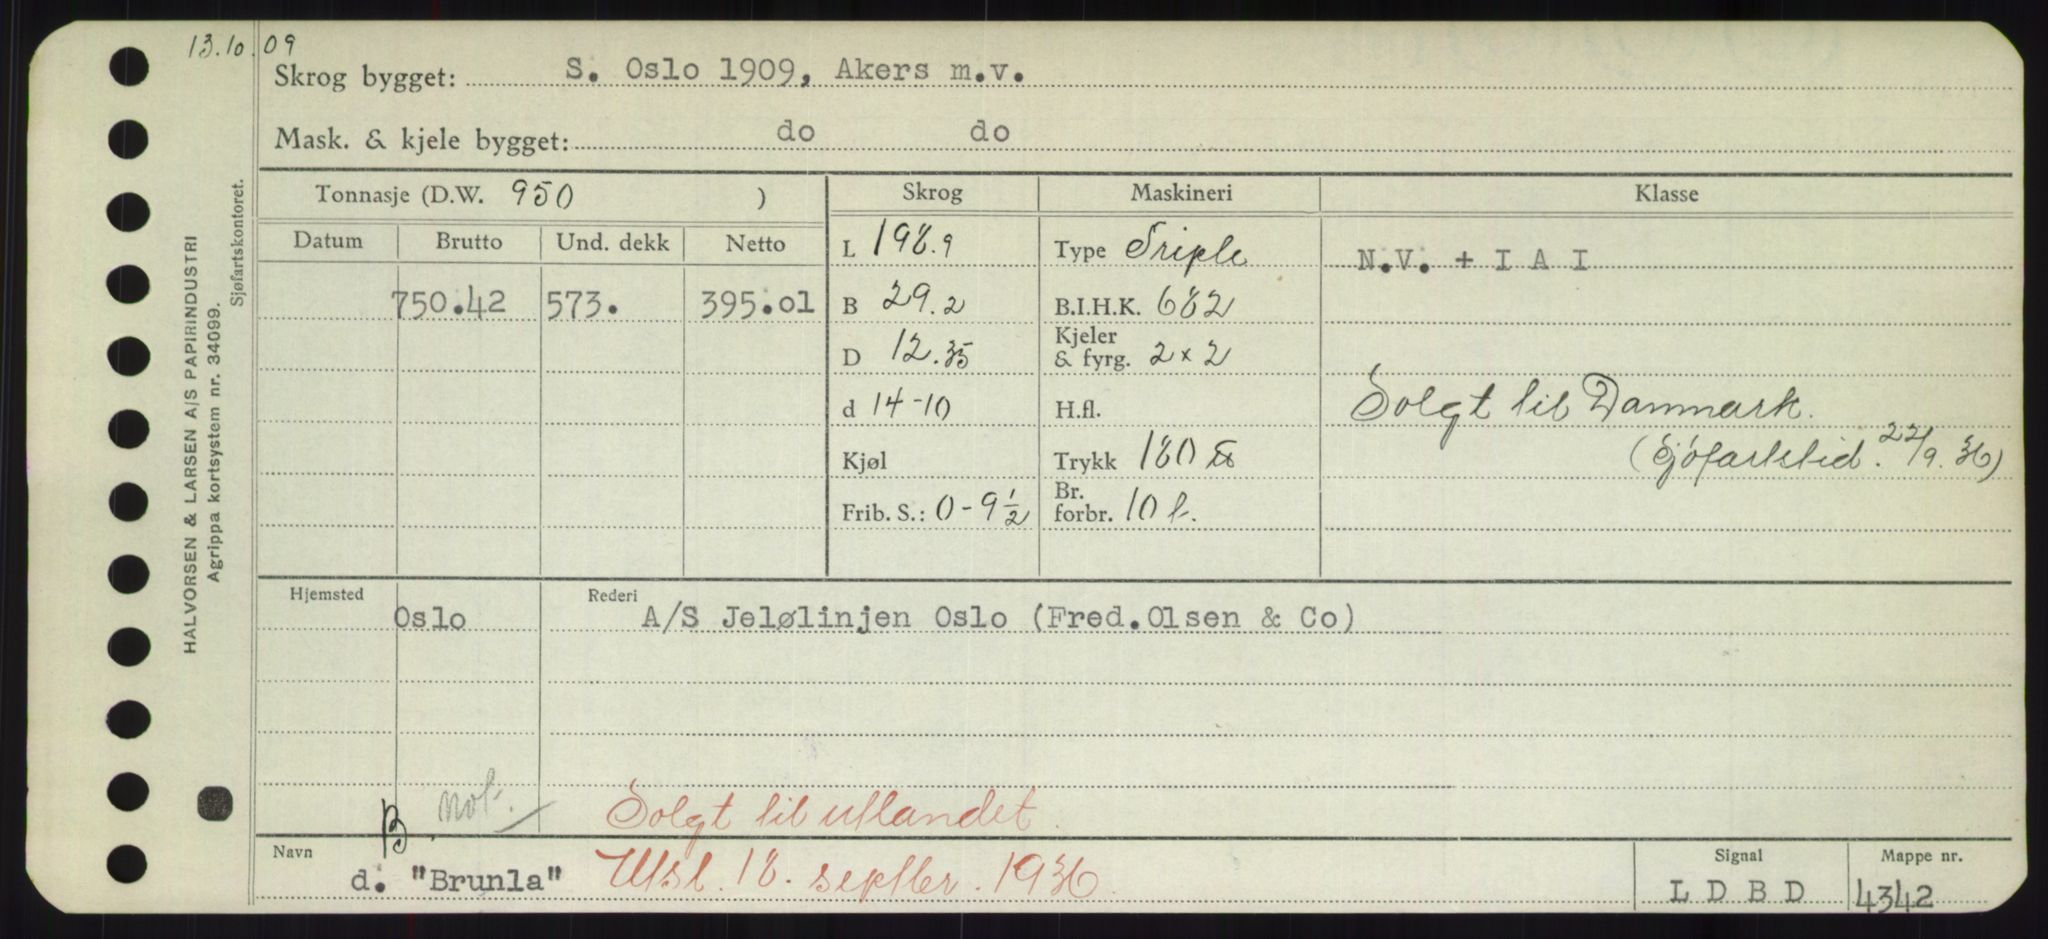 13.10.09
Skrog bygget: S. Oslo 1909, Akers m.v.
Mask. & kjele bygget: do do
Tonnasje (D.W. 950 )
Skrog
Maskineri
Klasse
Datum Brutto Und. dekk Netto
750.42 573. 395.01
L 198.9
B 29.2
D 12.35
d 14-10
Kjøl
Frib. S.: 0-9½
Type Triple
B.I.H.K. 682
Kjeler
& fyrg. 2 x 2
H.fl.
Trykk 180 lb
Br.
forbr. 10 t.
N.V. + I A I
Solgt til Danmark.
(Sjøfartstid. 22/9.36)
Hjemsted Oslo
Rederi A/S Jelølinjen Oslo (Fred.Olsen & Co)
B. not.
Solgt til utlandet.
Navn d. "Brunla" Utsl. 18. septber. 1936.
Signal L D B D
Mappe nr. 4342
HALVORSEN & LARSEN A/S PAPIRINDUSTRI
Agrippa kortsystem nr. 34099.
Sjøfartskontoret.